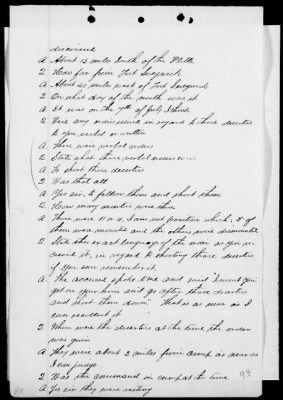 discovered
A About 15 miles South of the Platte
Q How far from Fort Sedgwick
A About 40 miles west of Fort Sedgwick
Q On what day of the month was it
A It was on the 7th of July I think
Q Were any orders issued in regard to those deserters
to you, verbal or written
A There were verbal orders
Q State what those verbal orders were
A To shoot those deserters
Q Was that all
A Yes sir, to follow them and shoot them
Q How many deserters were there
A There were 11 or 12, I am not positive which. 5 of
them were mounted and the others were dismounted
Q State the exact language of the order as you re-
ceived it, in regard to shooting those deserters
if you can remember it.
A The accused spoke once and said "I want you
get on your horse and go after those deserters
and shoot them down" That is as near as I
can recollect it
Q Where were the deserters at the time the order
was given
A They were about 2 miles from camp as near as
I can judge
Q Was the command in camp at the time
A Yes sir they were resting
93